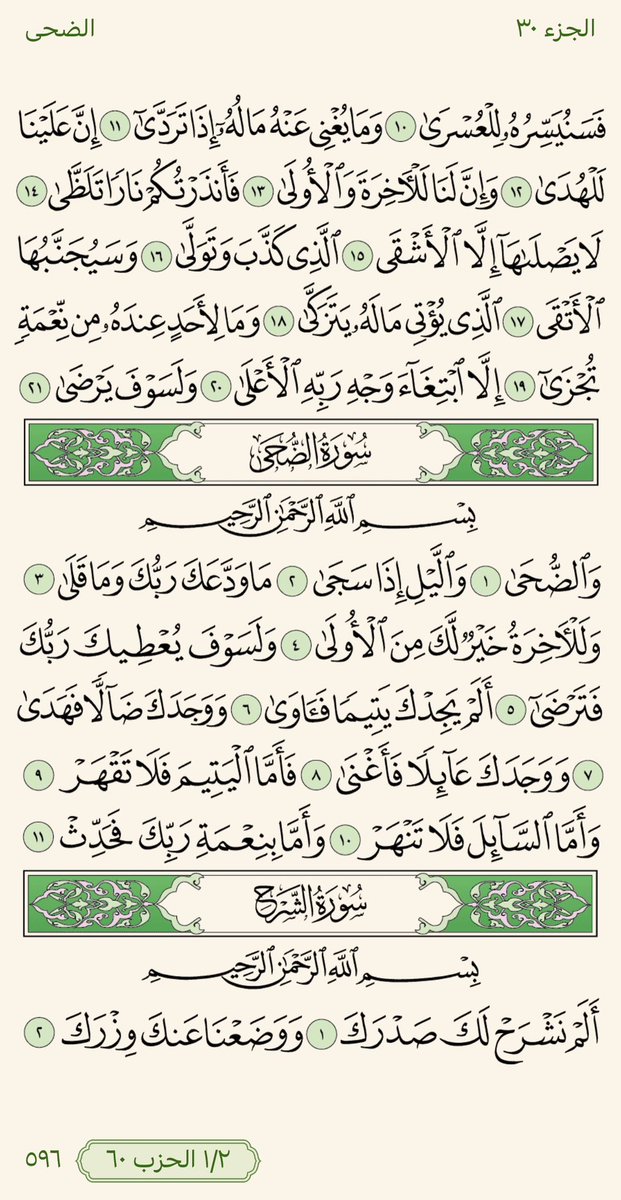 الجزء ٣٠ الضحى
فَسَنُيَسِّرُهُۥ لِلْعُسْرَىٰ ١٠ وَمَا يُغْنِى عَنْهُ مَالُهُۥٓ إِذَا تَرَدَّىٰٓ ١١ إِنَّ عَلَيْنَا
لَلْهُدَىٰ ١٢ وَإِنَّ لَنَا لَلْـَٔاخِرَةَ وَٱلْأُولَىٰ ١٣ فَأَنذَرْتُكُمْ نَارًا تَلَظَّىٰ ١٤
لَا يَصْلَىٰهَآ إِلَّا ٱلْأَشْقَى ١٥ ٱلَّذِى كَذَّبَ وَتَوَلَّىٰ ١٦ وَسَيُجَنَّبُهَا
ٱلْأَتْقَى ١٧ ٱلَّذِى يُؤْتِى مَالَهُۥ يَتَزَكَّىٰ ١٨ وَمَا لِأَحَدٍ عِندَهُۥ مِن نِّعْمَةٍ
تُجْزَىٰٓ ١٩ إِلَّا ٱبْتِغَآءَ وَجْهِ رَبِّهِ ٱلْأَعْلَىٰ ٢٠ وَلَسَوْفَ يَرْضَىٰ ٢١
سُورَةُ الضُّحَىٰ
بِسْمِ ٱللَّهِ ٱلرَّحْمَٰنِ ٱلرَّحِيمِ
وَٱلضُّحَىٰ ١ وَٱلَّيْلِ إِذَا سَجَىٰ ٢ مَا وَدَّعَكَ رَبُّكَ وَمَا قَلَىٰ ٣
وَلَلْـَٔاخِرَةُ خَيْرٌ لَّكَ مِنَ ٱلْأُولَىٰ ٤ وَلَسَوْفَ يُعْطِيكَ رَبُّكَ
فَتَرْضَىٰٓ ٥ أَلَمْ يَجِدْكَ يَتِيمًا فَـَٔاوَىٰ ٦ وَوَجَدَكَ ضَآلًّا فَهَدَىٰ
٧ وَوَجَدَكَ عَآئِلًا فَأَغْنَىٰ ٨ فَأَمَّا ٱلْيَتِيمَ فَلَا تَقْهَرْ ٩
وَأَمَّا ٱلسَّآئِلَ فَلَا تَنْهَرْ ١٠ وَأَمَّا بِنِعْمَةِ رَبِّكَ فَحَدِّثْ ١١
سُورَةُ الشَّرْحِ
بِسْمِ ٱللَّهِ ٱلرَّحْمَٰنِ ٱلرَّحِيمِ
أَلَمْ نَشْرَحْ لَكَ صَدْرَكَ ١ وَوَضَعْنَا عَنكَ وِزْرَكَ ٢
١/٢ الحزب ٦٠ ٥٩٦